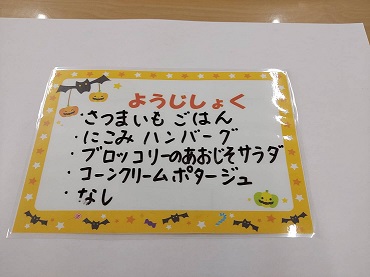 ようじしょく
・さつまいも ごはん
・にこみ ハンバーグ
・ブロッコリーのあおじそサラダ
・コーンクリームポタージュ
・なし